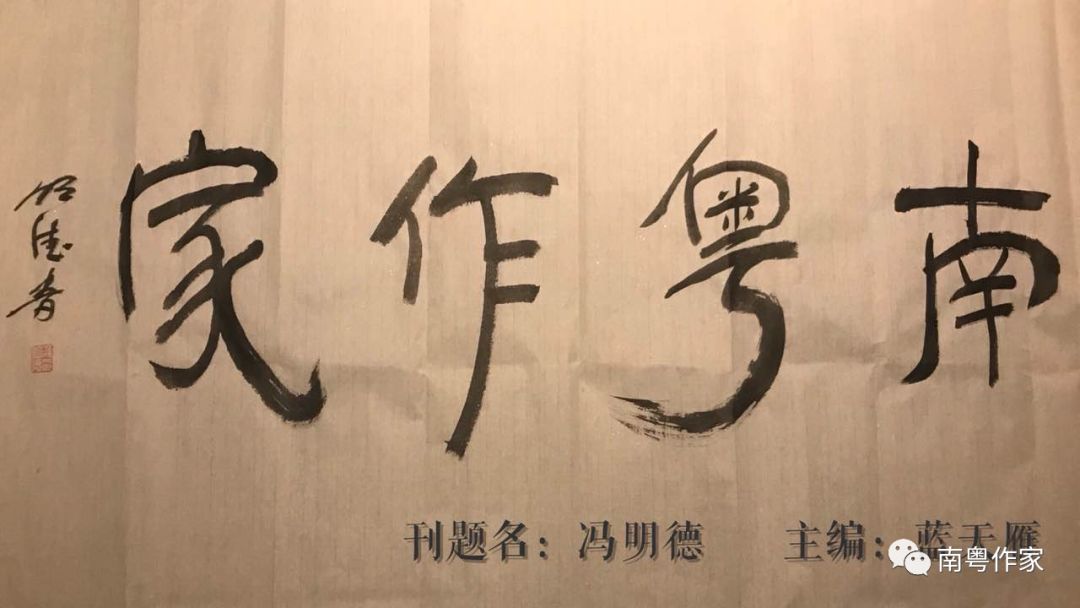 南粤作家
刊题名：冯明德 主编：蓝天雁
南粤作家